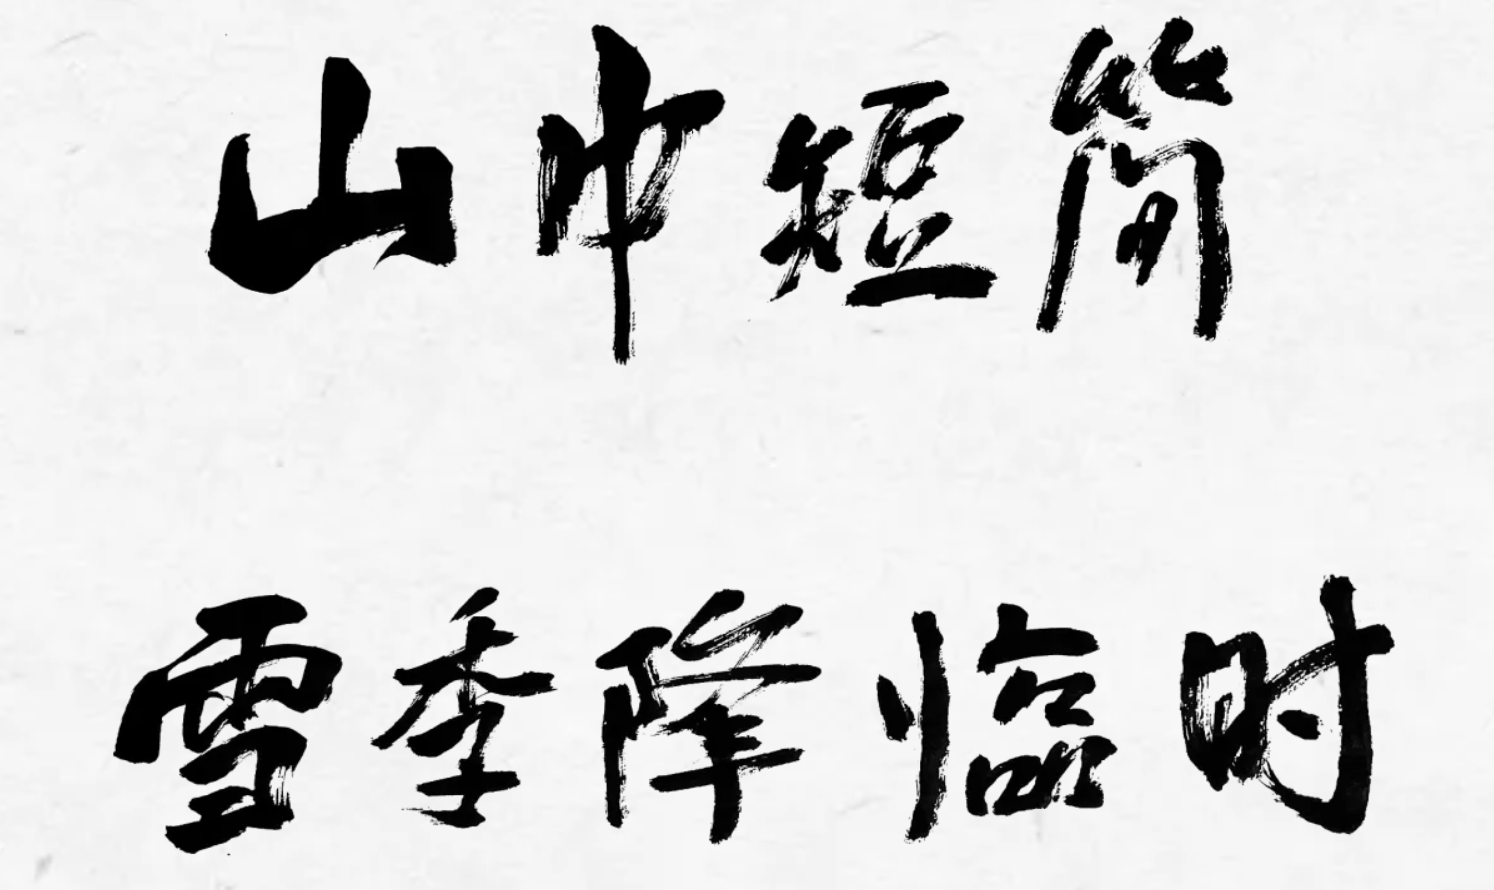 山中短简
雪季降临时